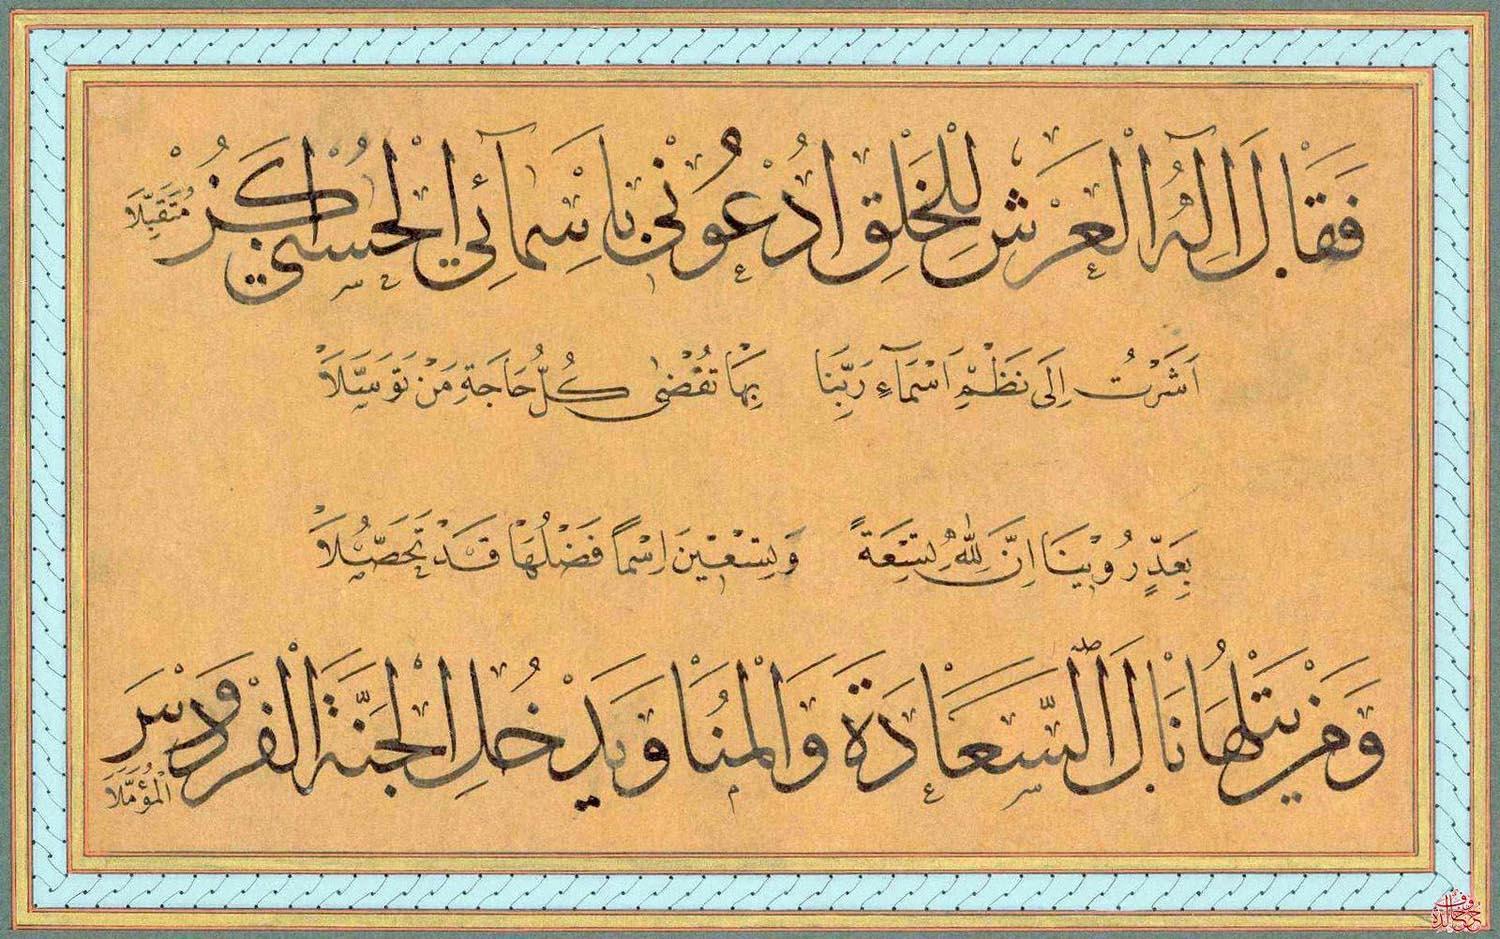 فَقَالَ اِلٰهُ الْعَرْشِ لِلْخَلْقِ ادْعُونِي بِاَسْمَآئِي الْحُسْنٰى اَكُنْ مُتَقَبِّلَا
اَشَرْتُ اِلَى نَظْمِ اَسْمَآءِ رَبِّنَا بِهَا تُقْضٰى كُلُّ حَاجَةِ مَنْ تَوَسَّلَا
بِعَدٍّ رُوِينَا اِنَّ لِلّٰهِ تِسْعَةً وَتِسْعِينَ اِسْمًا فَضْلُهَا قَدْ تَحَصَّلَا
وَمَنْ يَتْلُهَا نَالَ السَّعَادَةَ وَالْمُنَا وَيَدْخُلِ الْجَنَّةَ الْفِرْدَوْسَ الْمُؤَمَّلَا